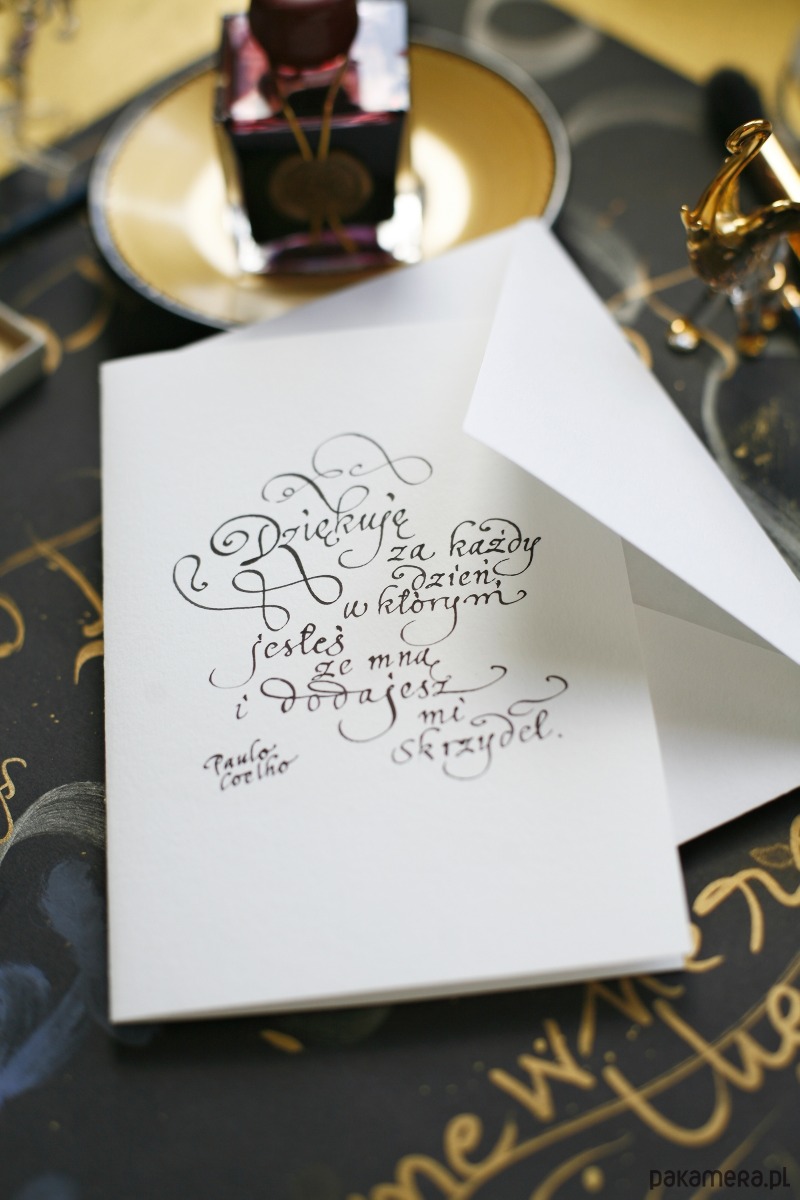 Dziękuję
za każdy
dzień,
w którym
jesteś
ze mną
i dodajesz
mi
skrzydeł.
Paulo
Coelho
pakamera.pl